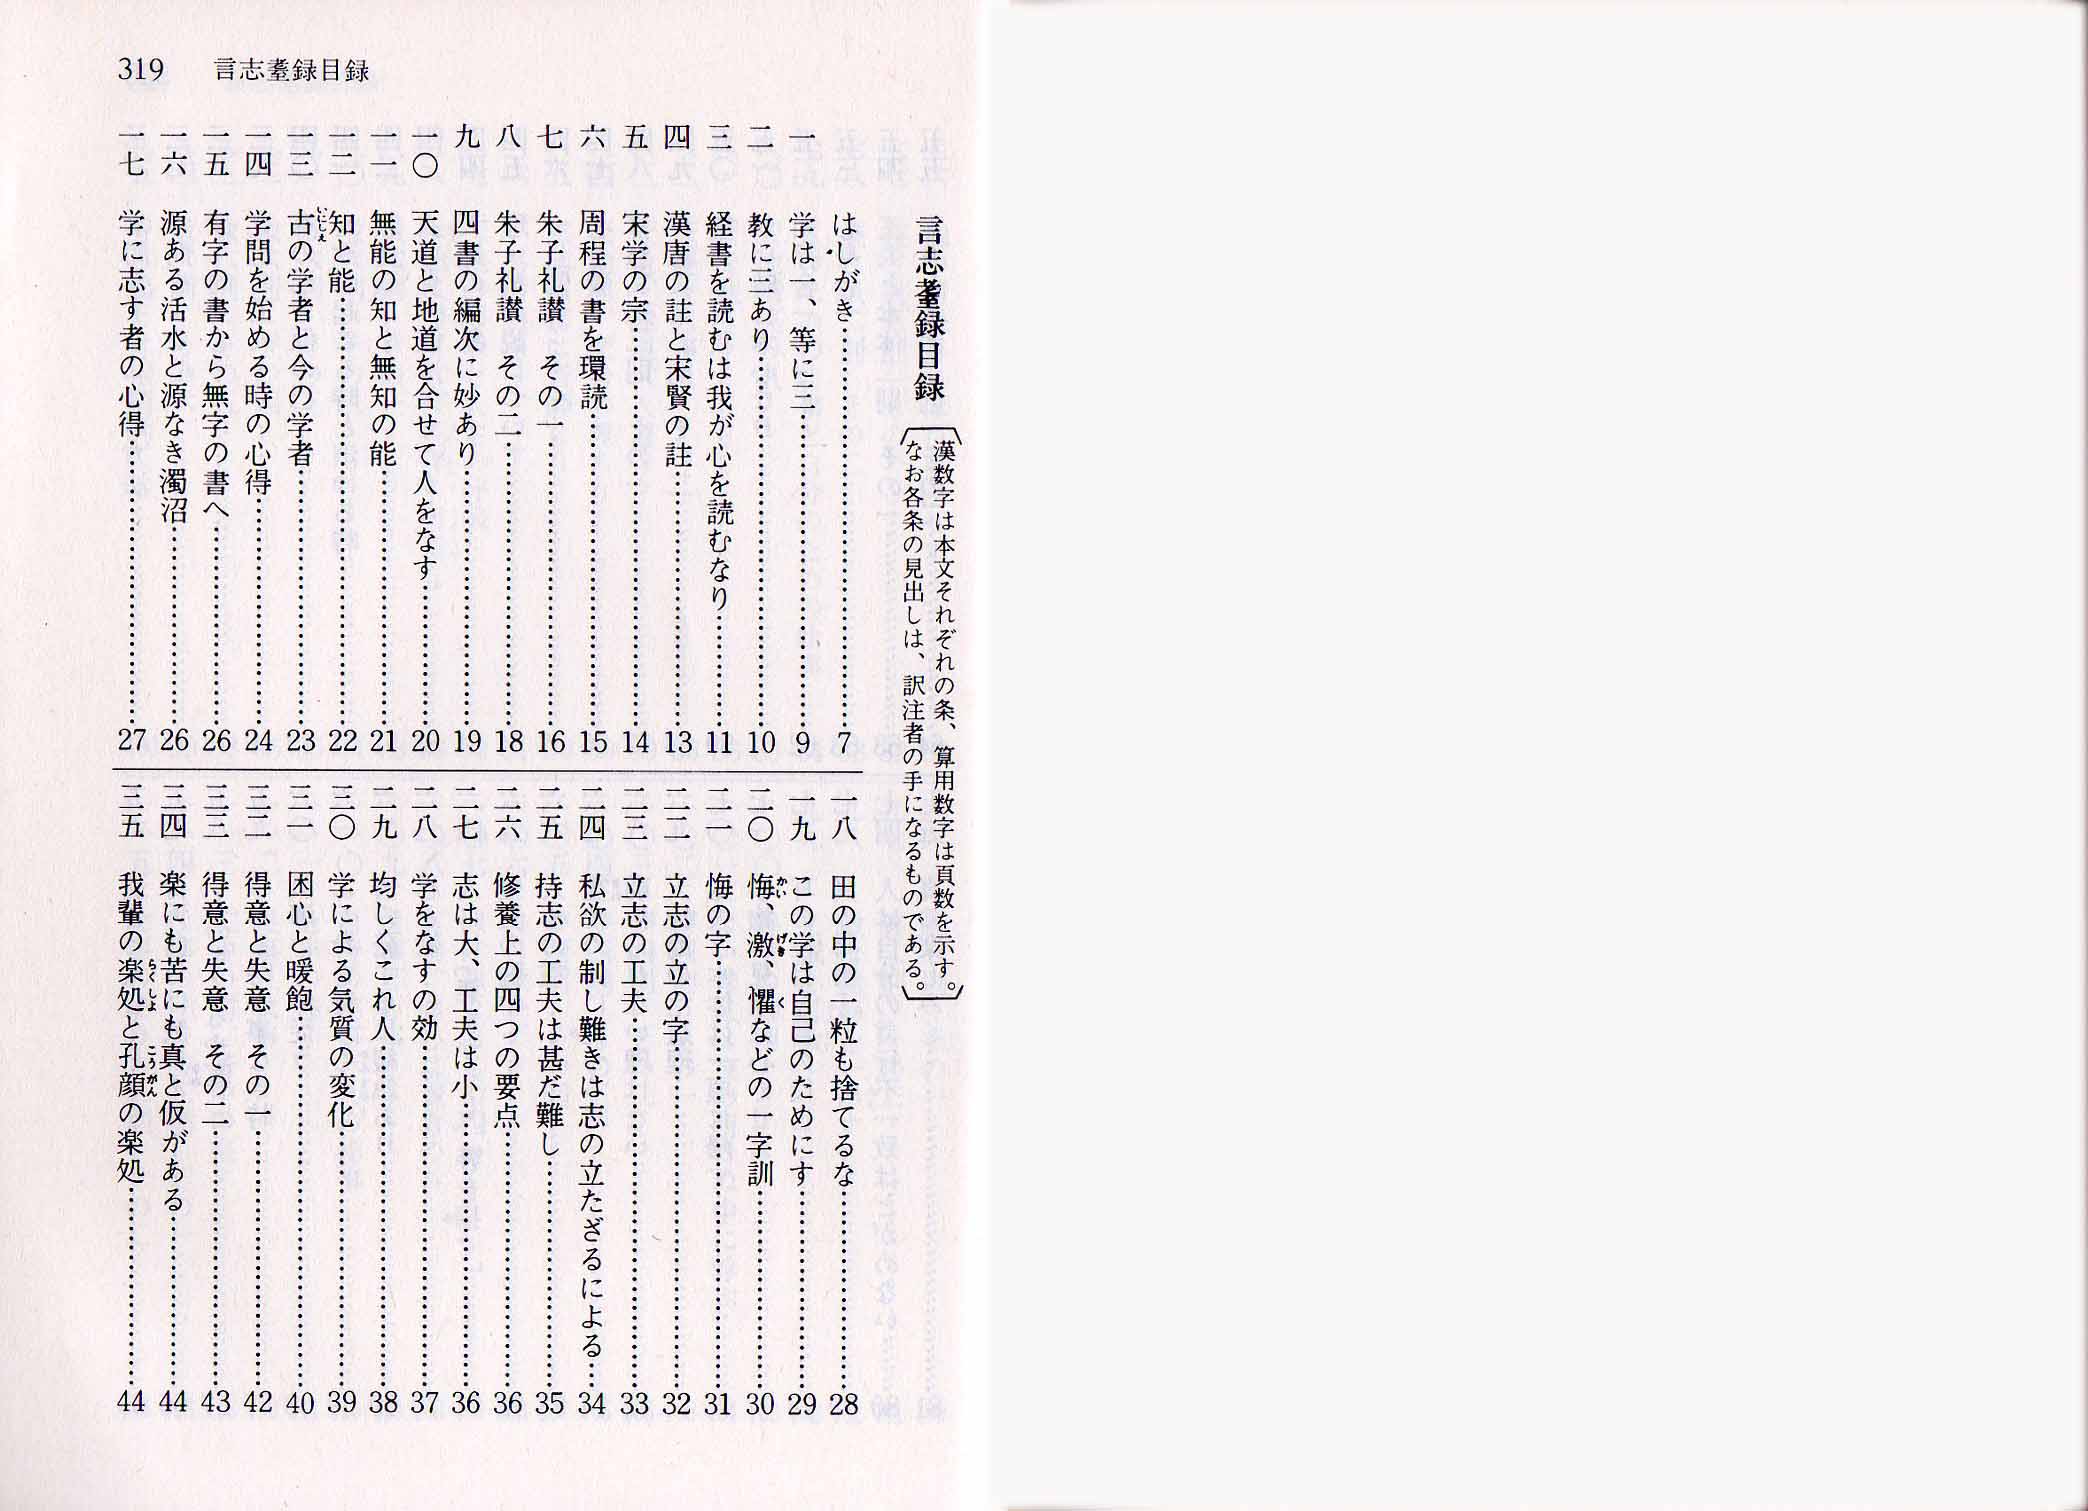 319 言志耋録目録
言志耋録目録
漢数字は本文それぞれの条、算用数字は頁数を示す。
なお各条の見出しは、訳注者の手になるものである。
はしがき……7
一 学は一、等に三……9
二 教に三あり……10
三 経書を読むは我が心を読むなり……11
四 漢唐の註と宋賢の註……13
五 宋学の宗……14
六 周程の書を環読……15
七 朱子礼讃 その一……16
八 朱子礼讃 その二……18
九 四書の編次に妙あり……19
一〇 天道と地道を合せて人をなす……20
一一 無能の知と無知の能……21
一二 知と能……22
一三 古の学者と今の学者……23
一四 学問を始める時の心得……24
一五 有字の書から無字の書へ……26
一六 源ある活水と源なき濁沼……26
一七 学に志す者の心得……27
一八 田の中の一粒も捨てるな……28
一九 この学は自己のためにす……29
二〇 悔、激、懼などの一字訓……30
二一 悔の字……31
二二 立志の立の字……32
二三 立志の工夫……33
二四 私欲の制し難きは志の立たざるによる……34
二五 持志の工夫は甚だ難し……35
二六 修養上の四つの要点……36
二七 志は大、工夫は小……36
二八 学をなすの効……37
二九 均しくこれ人……38
三〇 学による気質の変化……39
三一 困心と暖飽……40
三二 得意と失意 その一……42
三三 得意と失意 その二……43
三四 楽にも苦にも真と仮がある……44
三五 我輩の楽処と孔顔の楽処……44